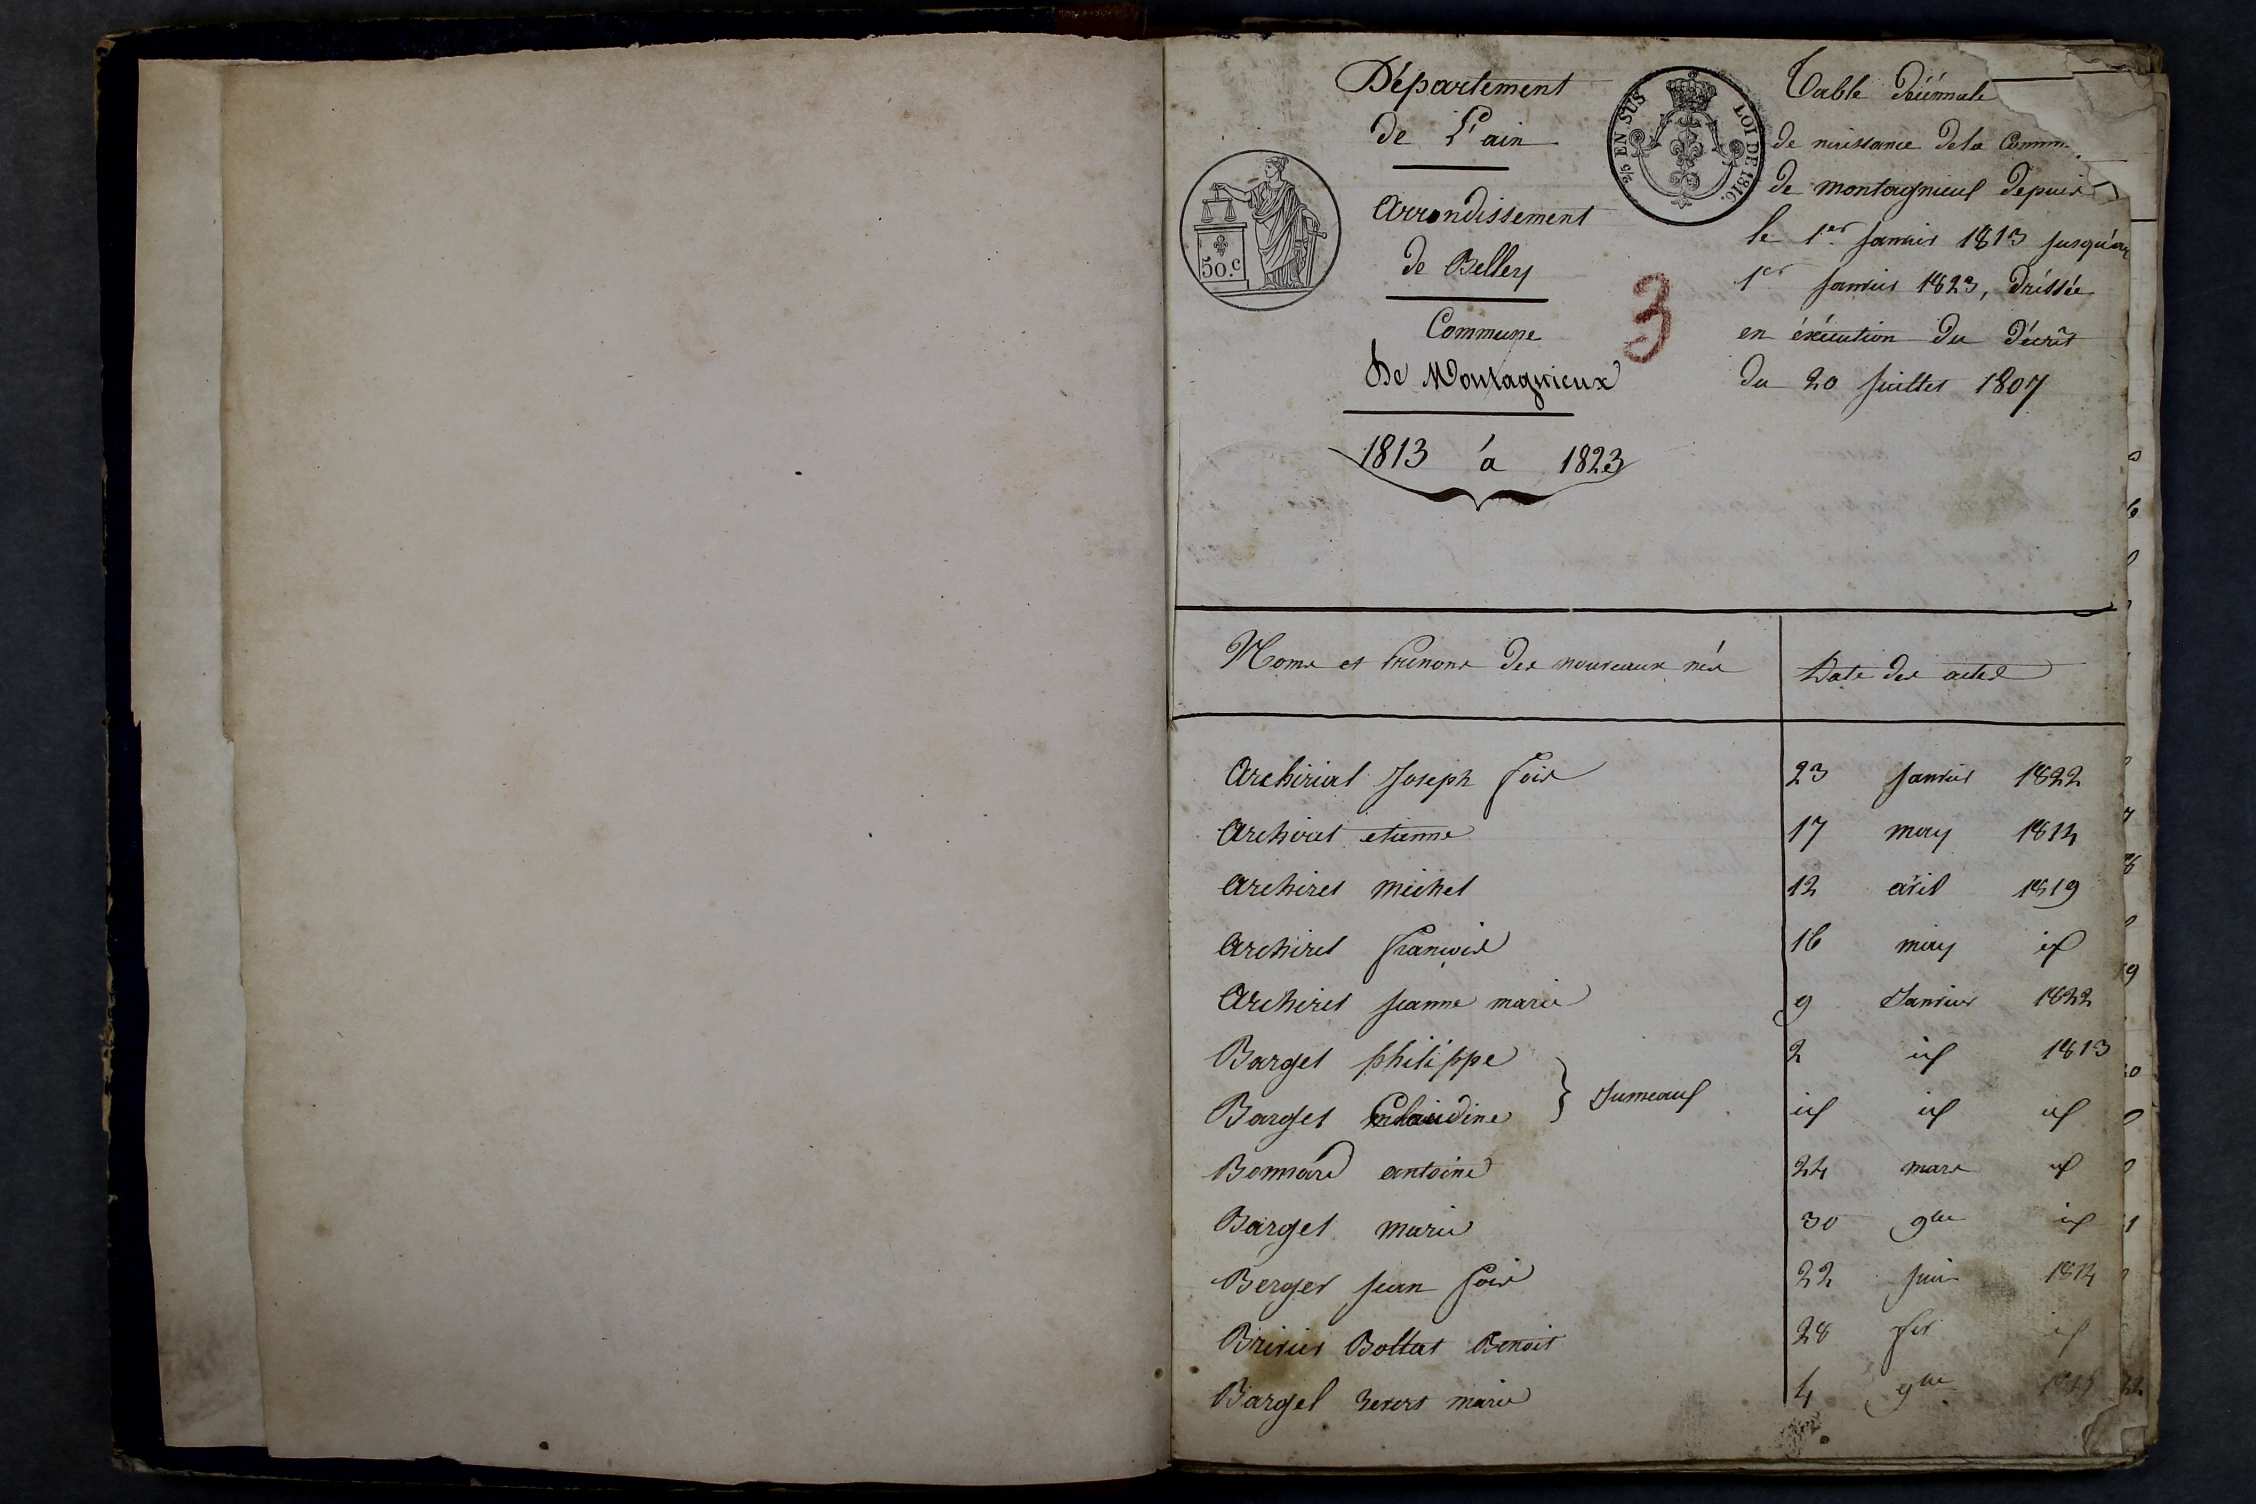 Département
de L'ain
Arrondissement
de Belley
Commune
De Montagnieux
1813 à 1823
50.c
2/5 EN SUS LOI DE 1816.
3
Table Décénnale
de naissance de la Comm
de montagnieux Depuis
le 1er Janvier 1813 jusqu'au
1er Janvier 1823, dréssée
en éxécution du décrêt
du 20 Juillet 1807
Noms et Prénoms des nouveaux nés Date des actes
Archirial Joseph fois 23 Janvier 1822
Archiret etienne 17 may 1814
Archiret michel 12 avril 1819
Archiret françois 16 may id
Archiret jeanne marie 9 Janvier 1822
Barget philippe 2 id 1813
Barget Claudine } Jumeaux id id id
Bonnard antoine 24 mars id
Barget marie 30 9bre id
Berger jean fois 22 juin 1814
Brivier Bottat Benoit 28 id
Barget marie 4 9bre